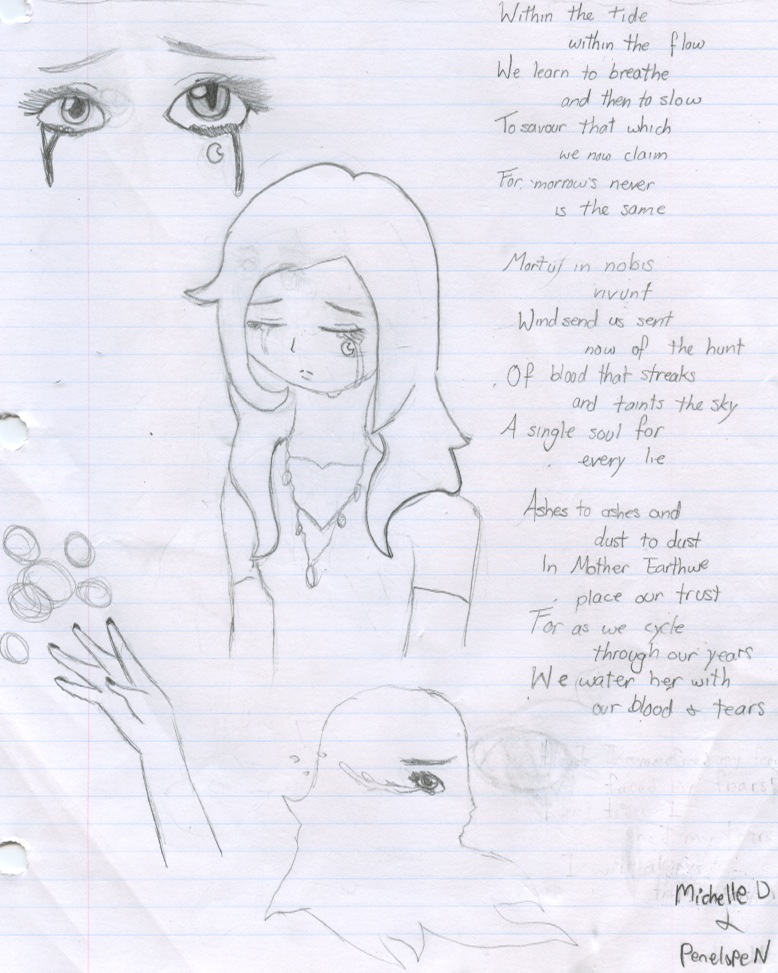 Within the tide
within the flow
We learn to breathe
and then to slow
To savour that which
we now claim
For 'morrow's never
is the same
Mortuj in nobis
vivunt
Wind send us sent
now of the hunt
Of blood that streaks
and taints the sky
A single soul for
every lie
Ashes to ashes and
dust to dust
In Mother Earth we
place our trust
For as we cycle
through our years
We water her with
our blood & tears
Michelle D.
&
Penelope N